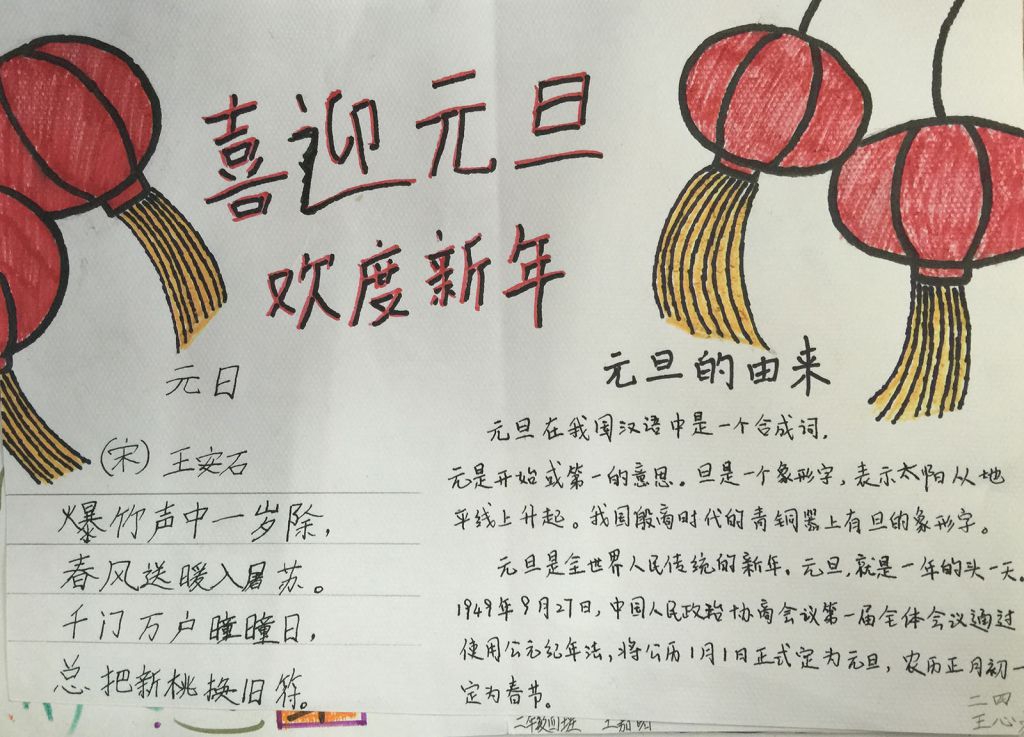 喜迎元旦
欢度新年
元日
（宋）王安石
爆竹声中一岁除，
春风送暖入屠苏。
千门万户曈曈日，
总把新桃换旧符。
元旦的由来
元旦在我国汉语中是一个合成词，
元是开始或第一的意思。旦是一个象形字，表示太阳从地
平线上升起。我国殷商时代的青铜器上有旦的象形字。
元旦是全世界人民传统的新年。元旦，就是一年的头一天。
1949年9月27日，中国人民政治协商会议第一届全体会议通过
使用公元纪年法，将公历1月1日正式定为元旦，农历正月初一
定为春节。
二四
王心
二年级四班